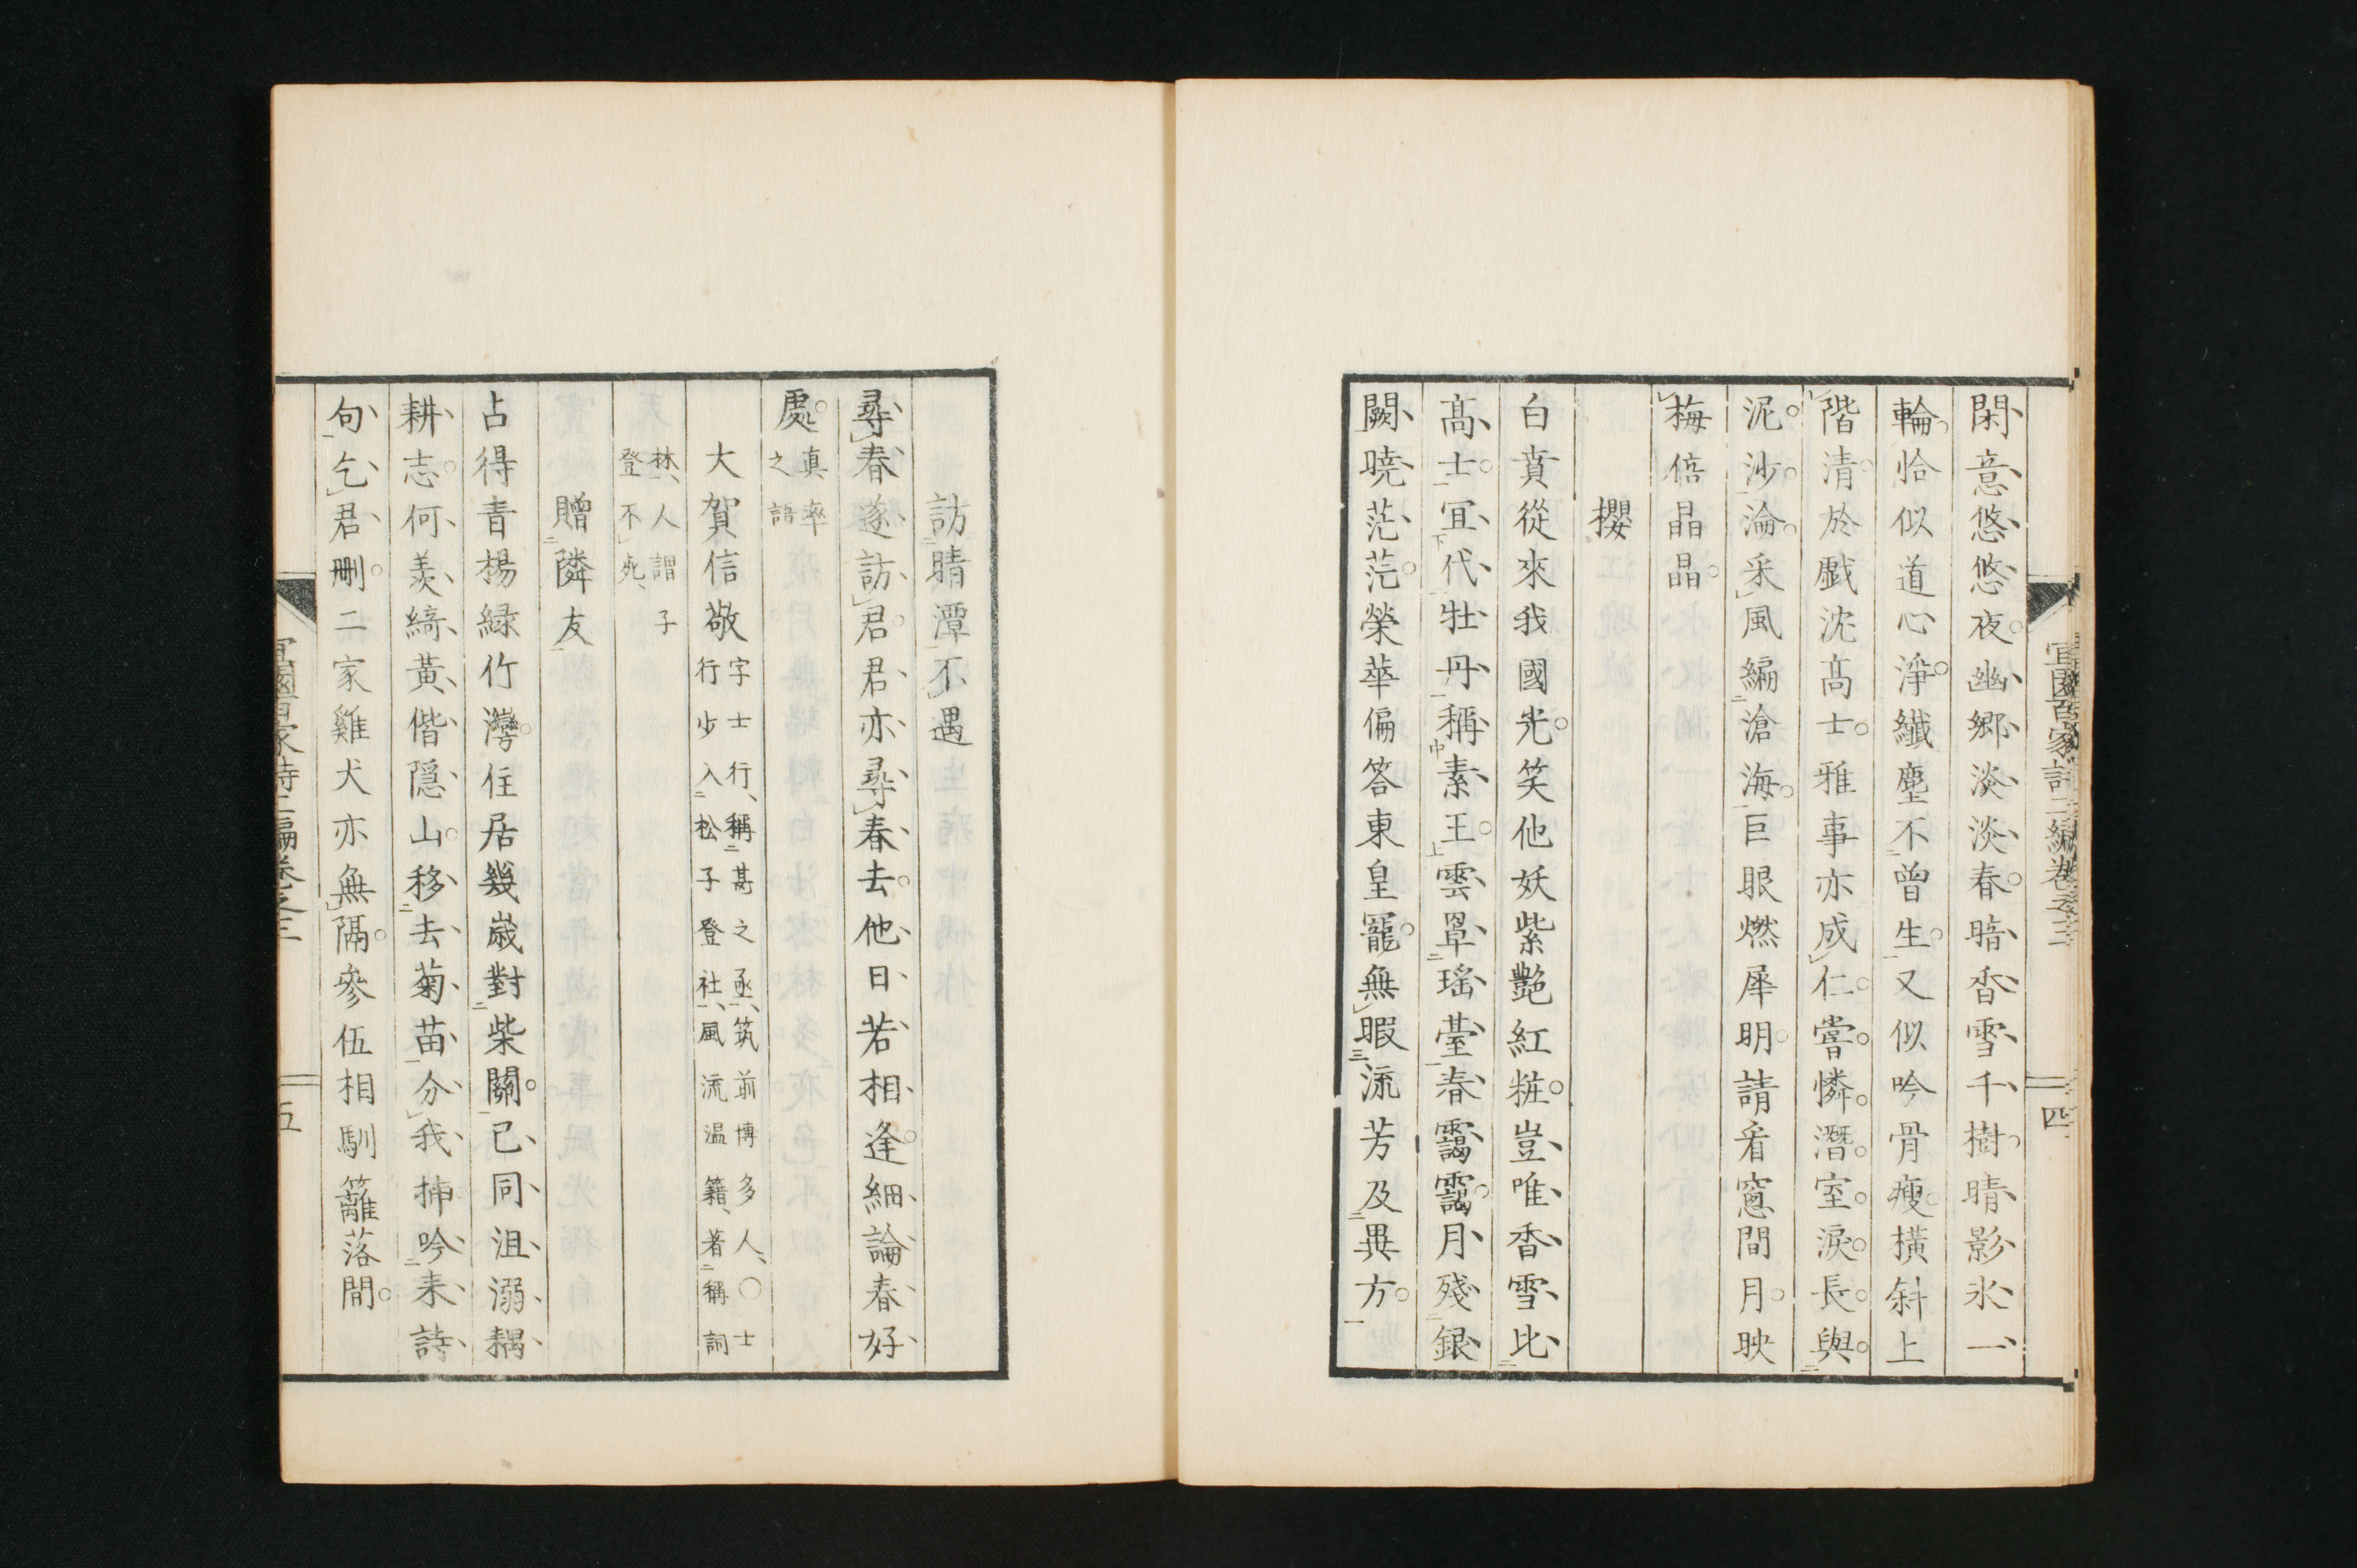 閑意悠悠夜幽鄉淡淡春暗香雪千樹晴影氷一
輪恰似道心淨纖塵不曾生又似吟骨瘦橫斜上
階清於戲沈髙士雅事亦成仁嘗憐潛室淚長與
泥沙淪采風編滄海巨眼燃犀明請看窻間月映
梅倍晶晶
櫻
白賁從來我國光笑他妖紫艷紅粧豈唯香雪比
髙士冝代牡丹稱素王雲罩瑶臺春靄靄月殘銀
闕曉茫茫榮華偏答東皇寵無暇流芳及異方
宜園百家詩二編卷之三
四
訪晴潭不遇
尋春遂訪君君亦尋春去他日若相逢細論春好
處
真率
之語
大賀信敬
字士行、稱甚之亟、筑前博多人、○士
行少入松子登社、風流温籍、著稱詞
林、人謂子
登不死、
贈隣友
占得青楊緑竹灣住居幾歲對柴關已同沮溺耦
耕志何羨綺黃偕隠山移去菊苗分我揷吟来詩
句乞君刪二家雞犬亦無隔參伍相馴籬落間
宜園百家詩二編卷之三
五